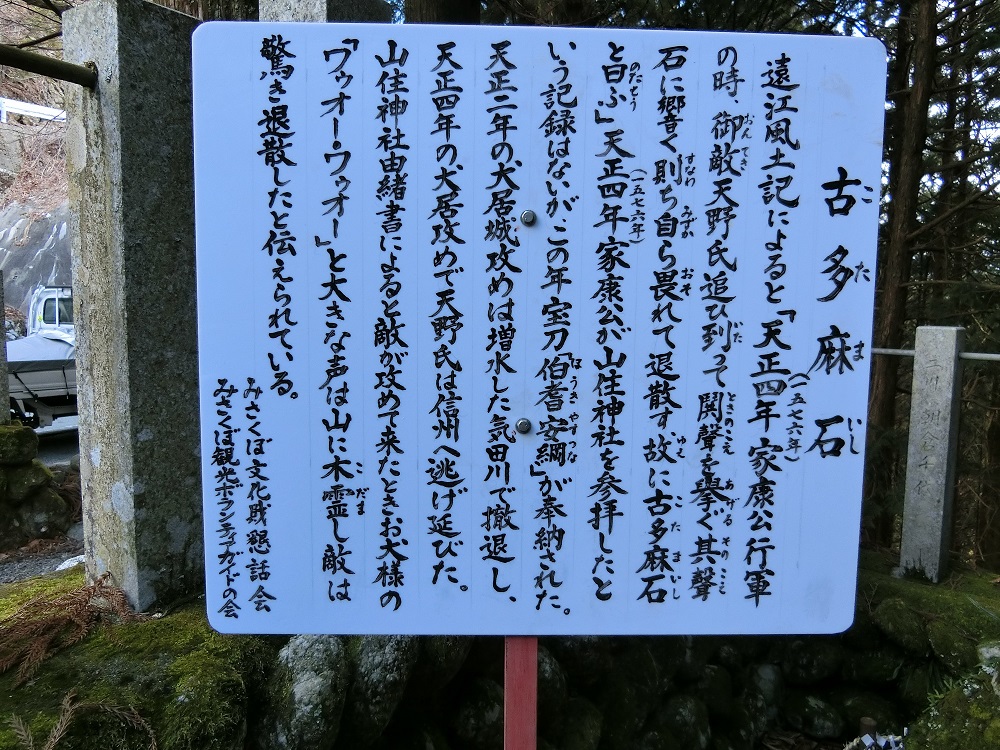 古多麻石
遠江風土記によると「天正四年(一五七六年)家康公行軍
の時、御敵天野氏追ひ到って鬨聲を擧ぐ其聲
石に響く則ち自ら畏れて退散す、故に古多麻石
と曰ふ」天正四年(一五七六年)家康公が山住神社を参拝したと
いう記録はないが、この年宝刀「伯耆安綱」が奉納された。
天正二年の、犬居城攻めは増水した気田川で撤退し、
天正四年の、犬居攻めで天野氏は信州へ逃げ延びた。
山住神社由緒書によると敵が攻めて来たときお犬様の
「ワゥオー・ワゥオー」と大きな声は山に木霊し敵は
驚き退散したと伝えられている。
みさくぼ文化財懇話会
みさくぼ観光ボランティアガイドの会